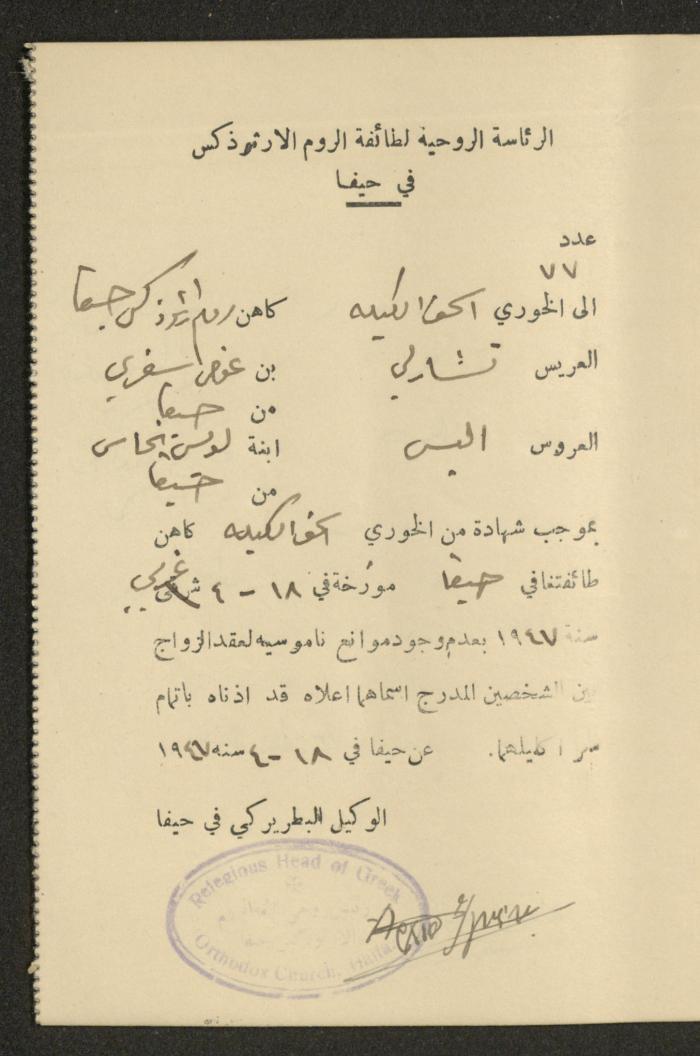 الرئاسة الروحية لطائفة الروم الارثوذكس
في حيفا
عدد
٧٧
الى الخوري كاهن روم ارثوذكس حيفا
العريس تشارلي بن عوض سفري
من حيفا
العروس اليس ابنة لويس نحاس
من حيفا
بموجب شهادة من الخوري كاهن
طائفتنا في حيفا مؤرخة في ١٨ - ٤ شرقي غربي
سنة ١٩٤٧ بعدم وجود موانع ناموسيه لعقد الزواج
بين الشخصين المدرج اسماهما اعلاه قد اذناه باتمام
سر اكليلهما. عن حيفا في ١٨ - ٤ سنه ١٩٤٧
الوكيل البطريركي في حيفا
Relegious Head of Greek
Orthodox Church, Haifa